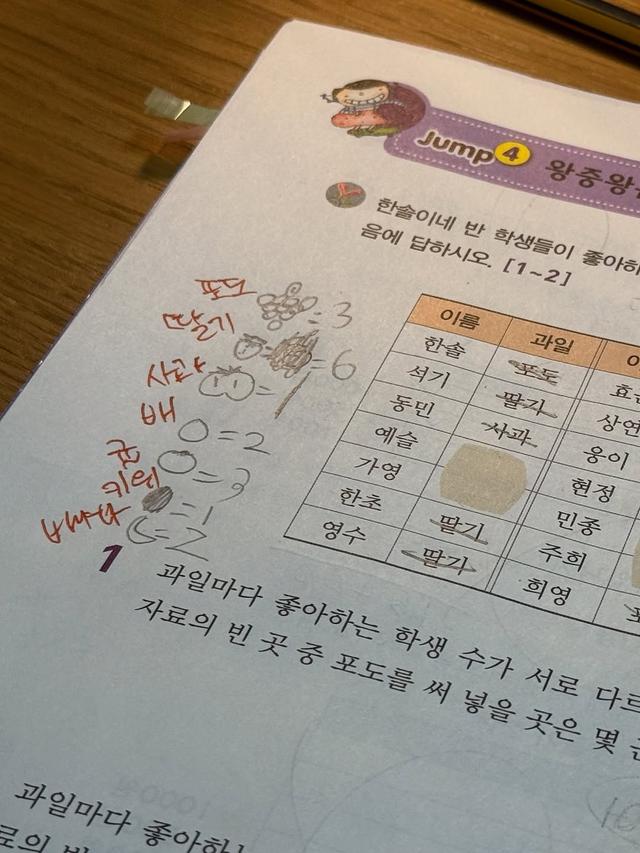 Jump 4 왕중왕
한솔이네 반 학생들이 좋아하
음에 답하시오. [1~2]
이름 과일
한솔 포도 효
석기 딸기 상연
동민 사과 웅이
예슬 현정
가영 민종
한초 딸기 주희
영수 딸기 희영
포도 : 3
딸기 = 6
사과 = 1
배 = 2
귤 = 3
키위 = 1
바나나 = 2
1
과일마다 좋아하는 학생 수가 서로 다르
자료의 빈 곳 중 포도를 써 넣을 곳은 몇
과일마다 좋아하